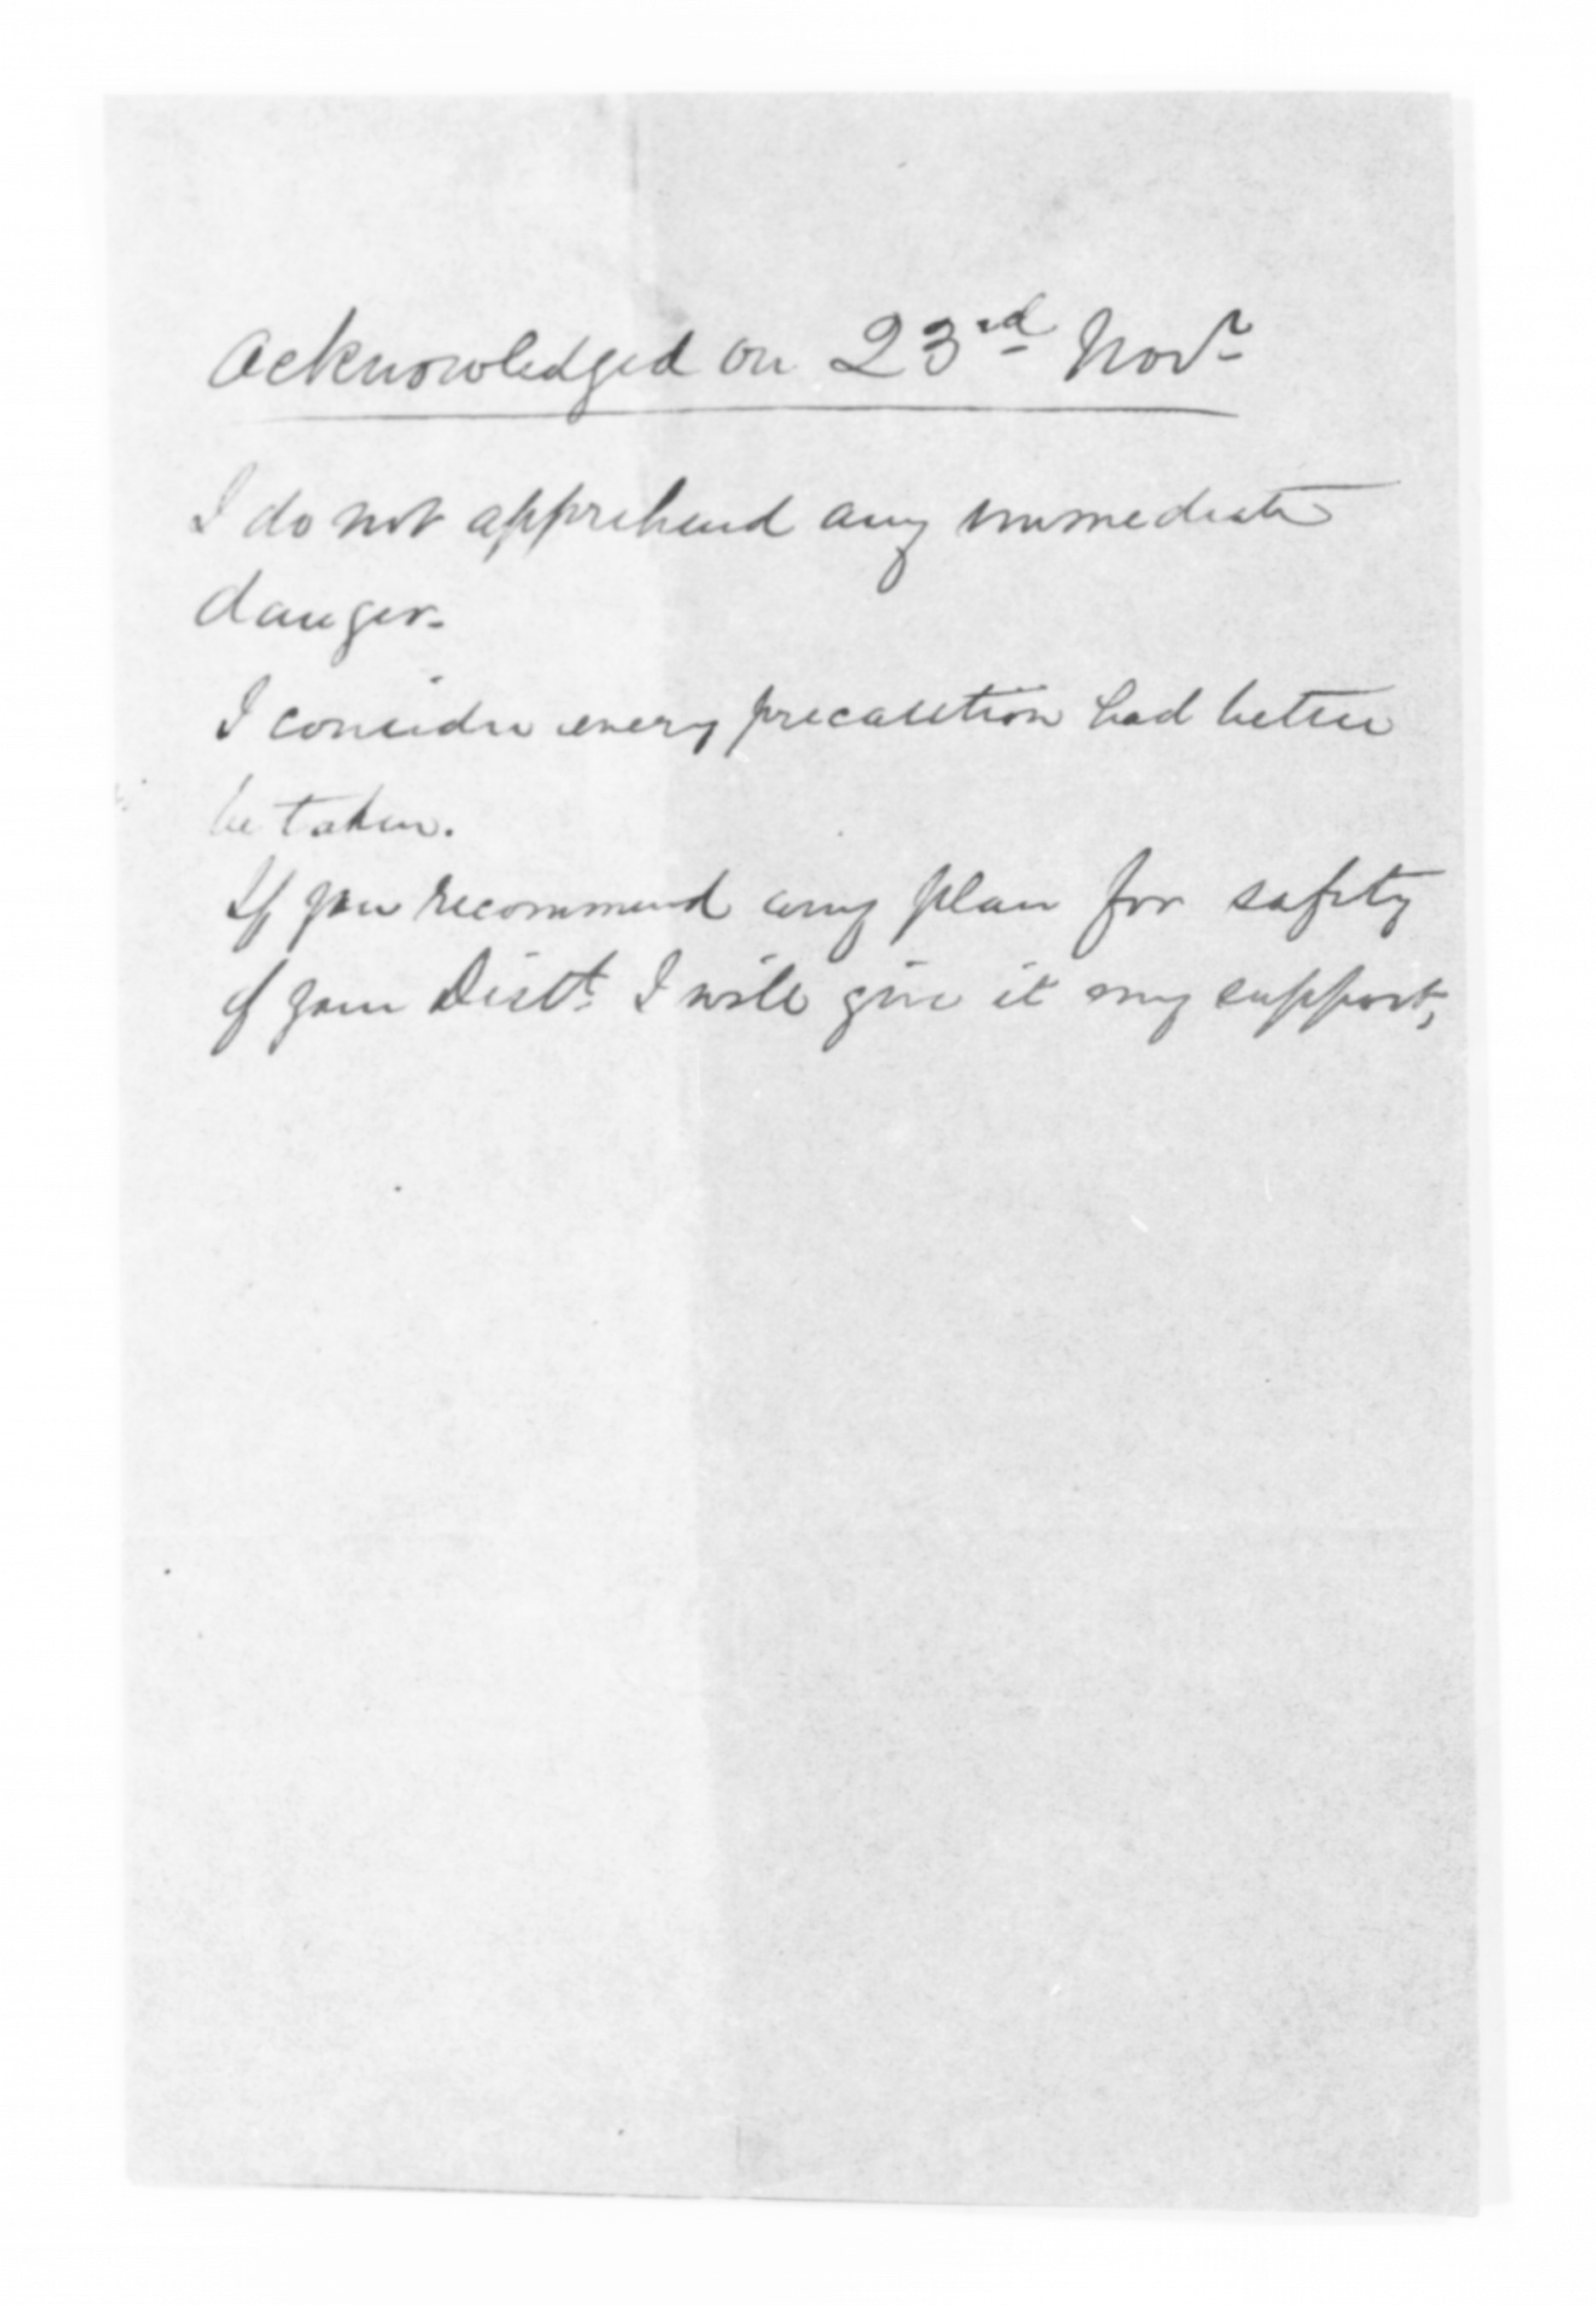 Acknowledged on 23rd Novr
I do not apprehend any immediate
danger.
I consider every precaution had better
be taken.
If you recommend any plan for safety
of your Distt. I will give it my support,